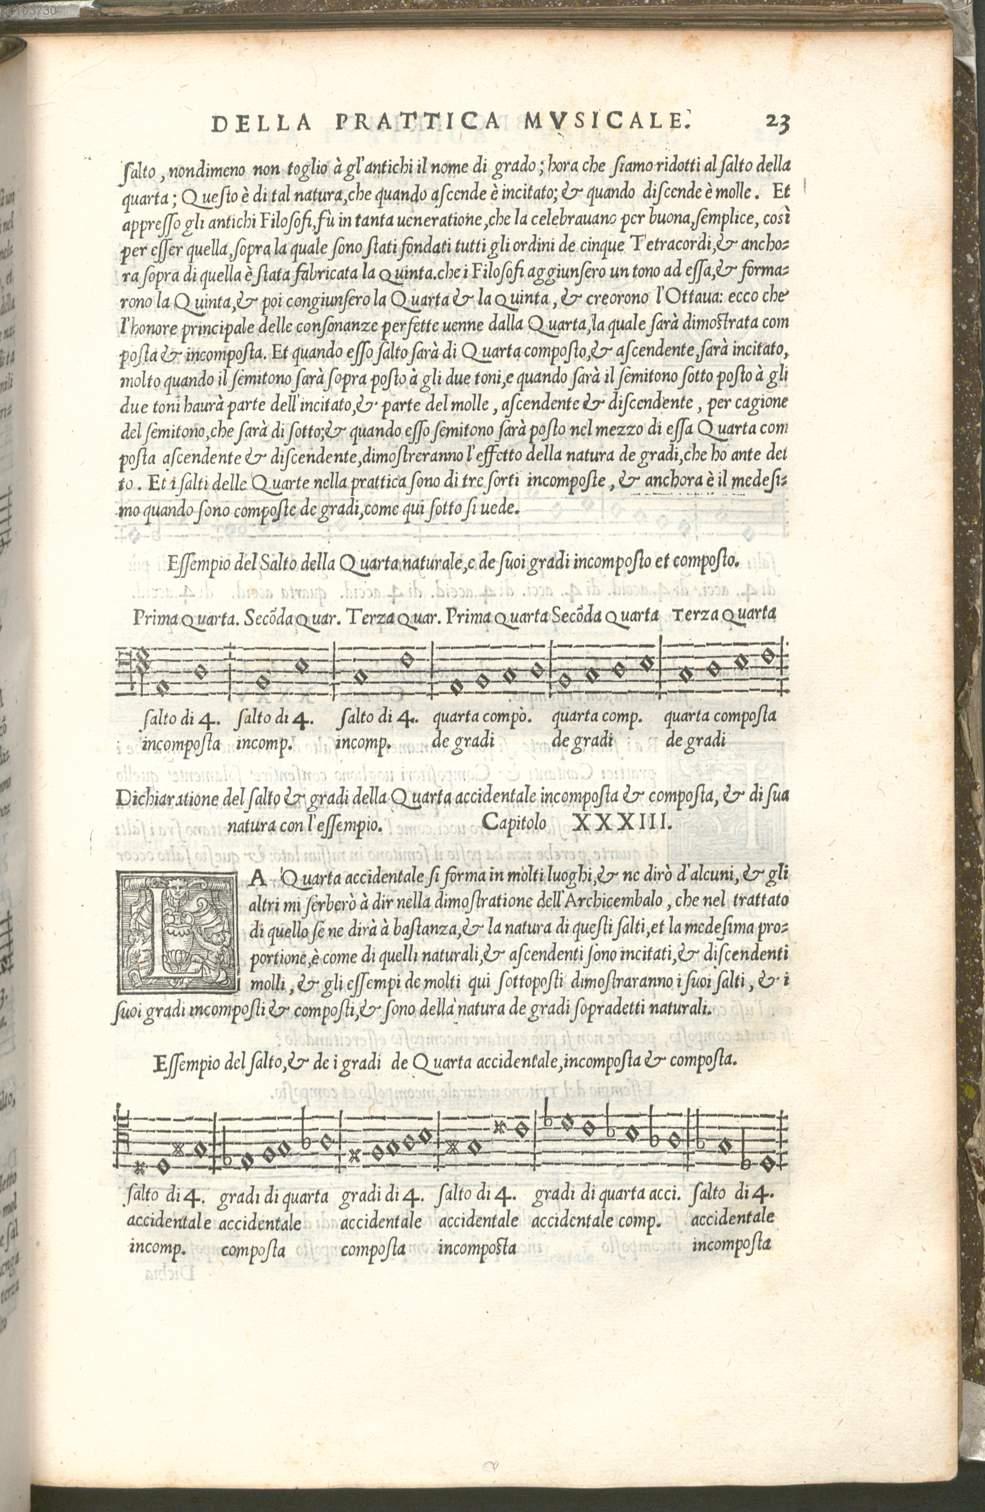 DELLA PRATTICA MVSICALE. 23
ſalto, nondimeno non toglio à gl'antichi il nome di grado; hora che ſiamo ridotti al ſalto della
quarta; Queſto è di tal natura, che quando aſcende è incitato; & quando diſcende è molle. Et
appreſſo gli antichi Filoſofi, fù in tanta ueneratione, che la celebrauano per buona, ſemplice, così
per eſſer quella, ſopra la quale ſono ſtati fondati tutti gli ordini de cinque Tetracordi, & ancho-
ra ſopra di quella è ſtata fabricata la Quinta. che i Filoſofi aggiunſero un tono ad eſſa, & forma-
rono la Quinta, & poi congiunſero la Quarta & la Quinta, & creorono l'Ottaua: ecco che
l'honore principale delle conſonanze perfette uenne dalla Quarta, la quale ſarà dimoſtrata com
poſta & incompoſta. Et quando eſſo ſalto ſarà di Quarta compoſto, & aſcendente, ſarà incitato,
molto quando il ſemitono ſarà ſopra poſto à gli due toni, e quando ſarà il ſemitono ſotto poſto à gli
due toni haurà parte dell'incitato, & parte del molle, aſcendente & diſcendente, per cagione
del ſemitono, che ſarà di ſotto; & quando eſſo ſemitono ſarà poſto nel mezzo di eſſa Quarta com
poſta aſcendente & diſcendente, dimoſtreranno l'effetto della natura de gradi, che ho ante det
to. Et i ſalti delle Quarte nella prattica ſono di tre ſorti incompoſte, & anchora è il medeſi-
mo quando ſono compoſte de gradi, come qui ſotto ſi uede.
Eſſempio del Salto della Quarta naturale, e de ſuoi gradi incompoſto et compoſto.
Prima Quarta. Secōda Quar. Terza Quar. Prima Quarta Secōda Quarta Terza Quarta
ſalto di 4. ſalto di 4. ſalto di 4. quarta compò. quarta comp. quarta compoſta
incompoſta incomp. incomp. de gradi de gradi de gradi
Dichiaratione del ſalto & gradi della Quarta accidentale incompoſta & compoſta, & di ſua
natura con l'eſſempio. Capitolo XXXIII.
LA Quarta accidentale ſi forma in molti luoghi, & ne dirò d'alcuni, & gli
altri mi ſerberò à dir nella dimoſtratione dell'Archicembalo, che nel trattato
di quello ſe ne dirà à baſtanza, & la natura di queſti ſalti, et la medeſima pro-
portione, è come di quelli naturali, & aſcendenti ſono incitati, & diſcendenti
molli, & gli eſſempi de molti qui ſottopoſti dimoſtraranno i ſuoi ſalti, & i
ſuoi gradi incompoſti & compoſti, & ſono della natura de gradi ſopradetti naturali.
Eſſempio del ſalto, & de i gradi de Quarta accidentale, incompoſta & compoſta.
ſalto di 4. gradi di quarta gradi di 4. ſalto di 4. gradi di quarta acci. ſalto di 4.
accidentale accidentale accidentale accidentale accidentale comp. accidentale
incomp. compoſta compoſta incompoſta incompoſta